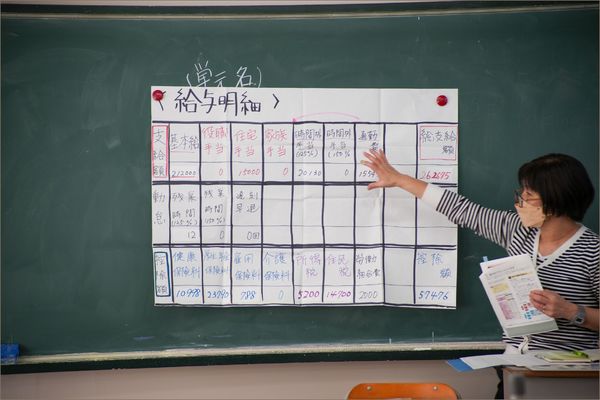 （単元名）
〈 給与明細 〉
支給額 基本給 役職手当 住宅手当 家族手当 時間外手当(125%) 時間外手当(150%) 通勤 総支給額
212000 0 15000 0 20130 0 262675
勤怠 残業時間(125%) 残業時間(150%) 遅刻早退
12 0 0回
控除額 健康保険料 厚生年金保険料 雇用保険料 介護保険料 所得税 住民税 労働組合費 控除額
10998 23790 788 0 5200 14700 2000 57476